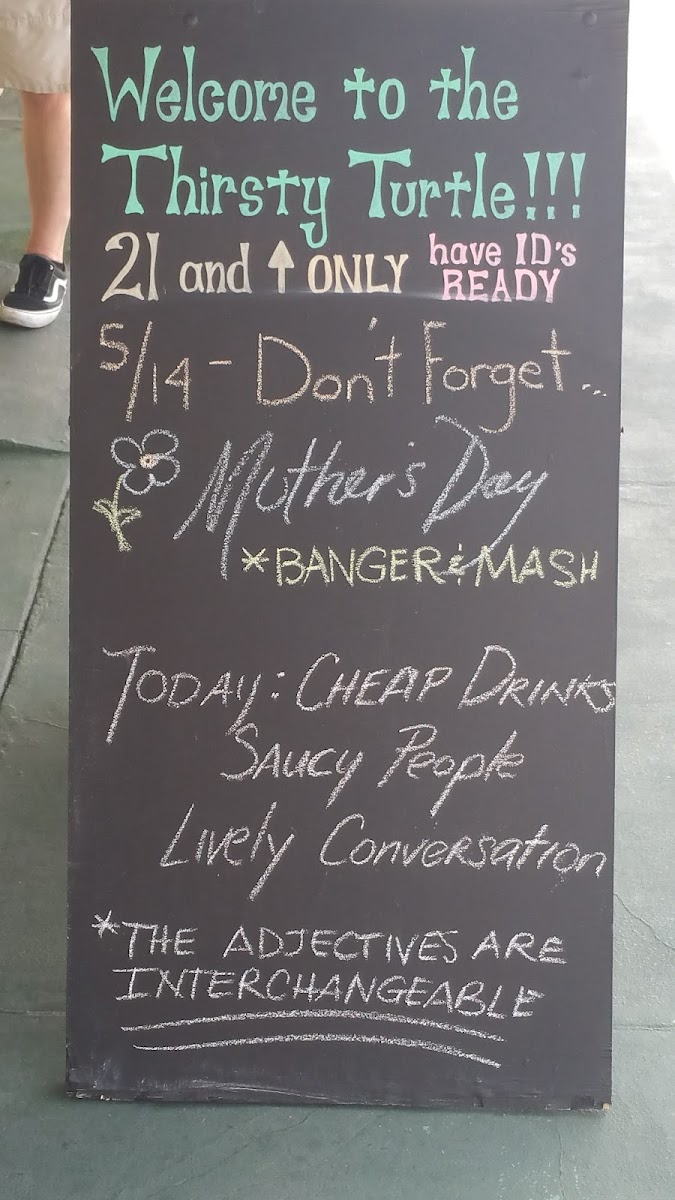 Welcome to the
Thirsty Turtle!!!
21 and ↑ ONLY have ID's READY
5/14 - Don't Forget...
Mother's Day
*BANGER & MASH
TODAY: CHEAP DRINKS
SAUCY PEOPLE
LIVELY CONVERSATION
*THE ADJECTIVES ARE
INTERCHANGEABLE